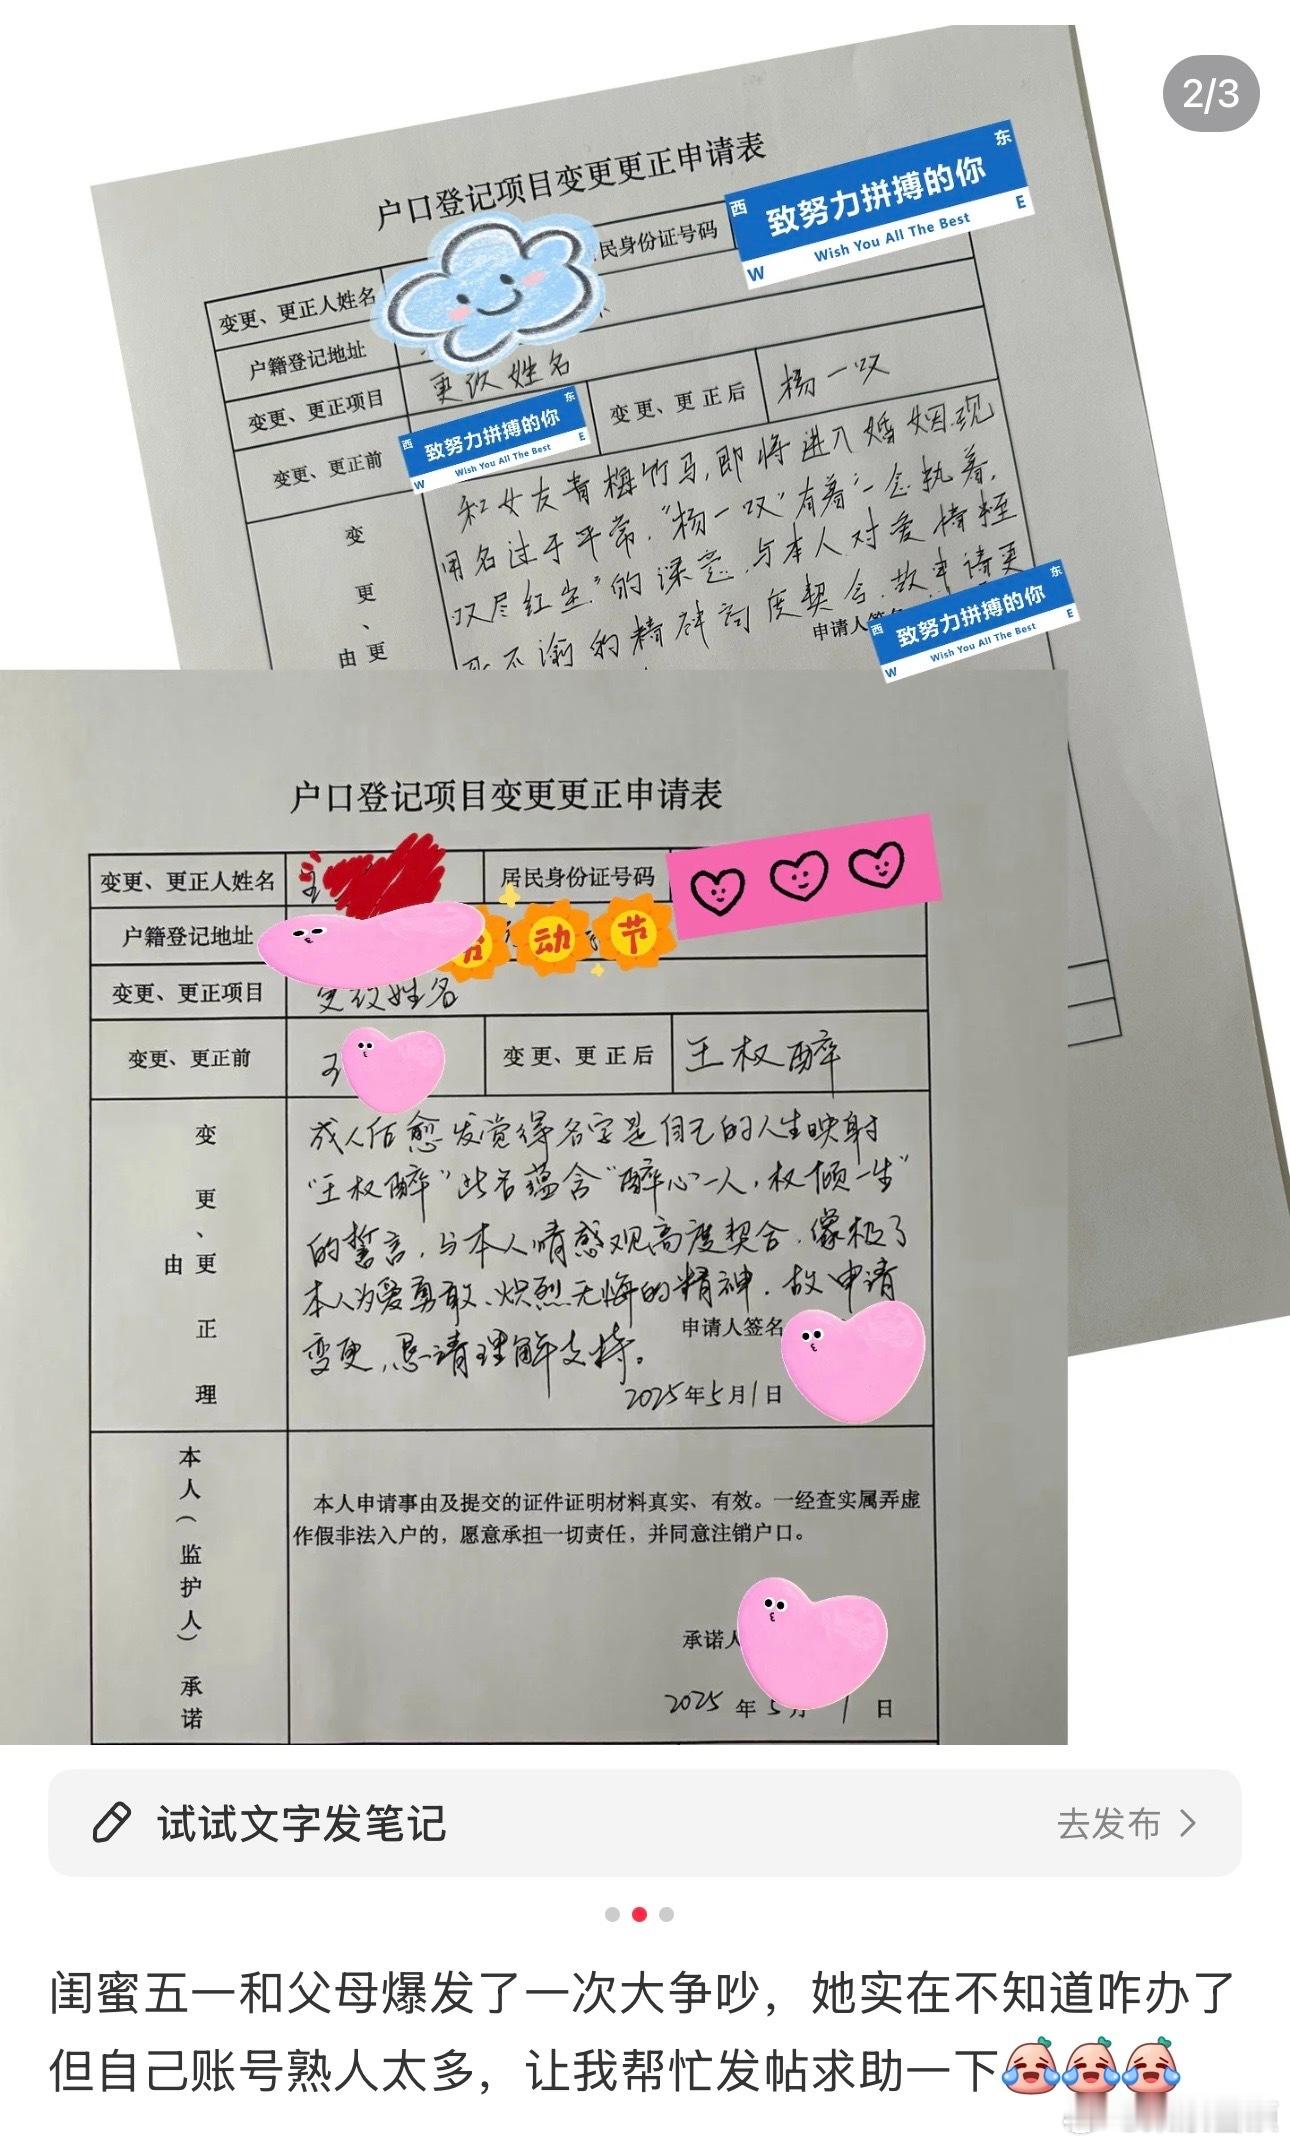 2/3
户口登记项目变更更正申请表
东
西
致努力拼搏的你
E
Wish You All The Best
W
变更、更正人姓名
民身份证号码
户籍登记地址
变更、更正项目
更改姓名
变更、更正前
东
西
致努力拼搏的你
E
Wish You All The Best
W
变更、更正后
杨一叹
变
更
、
由 更
和女友青梅竹马,即将进入婚姻.现
用名过于平常.“杨一叹”有着“一念执着,
叹尽红尘”的深意,与本人对爱情坚
不渝的精神高度契合.故申请更
申请人签名
东
西
致努力拼搏的你
E
Wish You All The Best
W
户口登记项目变更更正申请表
变更、更正人姓名
居民身份证号码
户籍登记地址
动 节
变更、更正项目
更改姓名
变更、更正前
变更、更正后
王权醉
变
更
、
由 更
正
理
成人后愈发觉得名字是自己的人生映射
“王权醉”此名蕴含“醉心一人,权倾一生”
的誓言,与本人情感观高度契合.像极了
本人为爱勇敢、炽烈无悔的精神.故申请
变更,恳请理解支持。
申请人签名
2025年5月1日
本
人
(
监
护
人
)
承
诺
本人申请事由及提交的证件证明材料真实、有效。一经查实属弄虚
作假非法入户的，愿意承担一切责任，并同意注销户口。
承诺人
2025 年 5 月 1 日
试试文字发笔记
去发布
闺蜜五一和父母爆发了一次大争吵，她实在不知道咋办了
但自己账号熟人太多，让我帮忙发帖求助一下